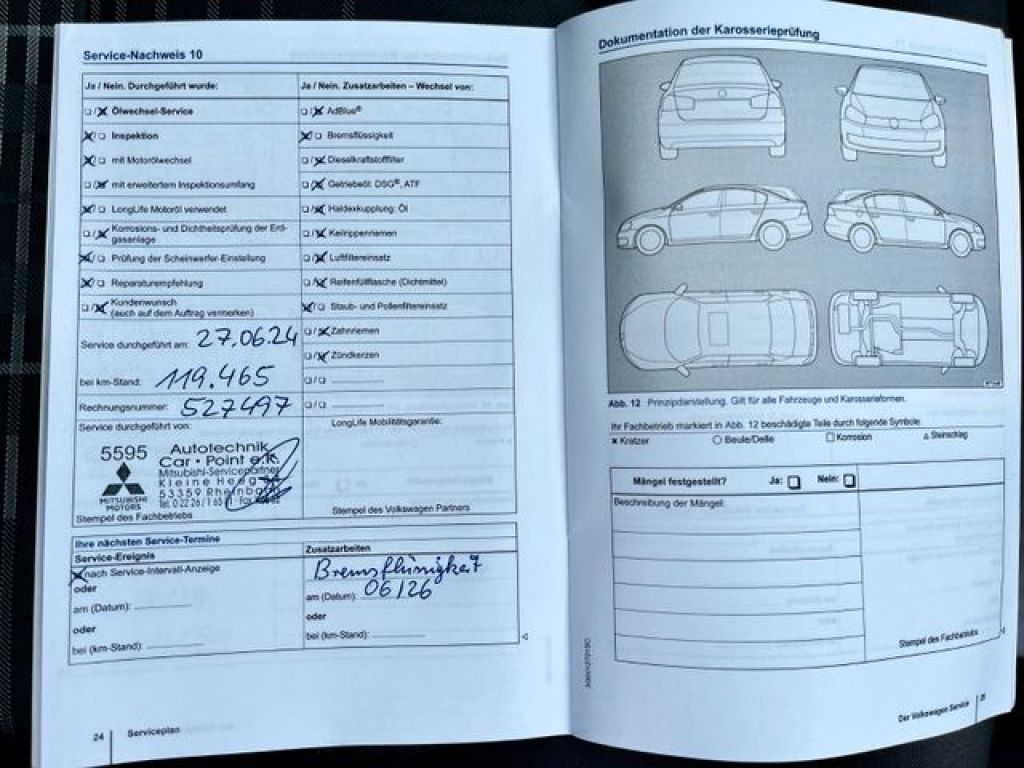 Service-Nachweis 10
Ja / Nein. Durchgeführt wurde:
Ölwechsel-Service
Inspektion
mit Motorölwechsel
mit erweitertem Inspektionsumfang
LongLife Motoröl verwendet
Korrosions- und Dichtheitsprüfung der Erd-
gasanlage
Prüfung der Scheinwerfer-Einstellung
Reparaturempfehlung
Kundenwunsch
(auch auf dem Auftrag vermerken)
Service durchgeführt am: 27.06.24
bei km-Stand: 119.465
Rechnungsnummer: 527497
Service durchgeführt von:
5595
MITSUBISHI
MOTORS
Autotechnik
Car • Point e.K.
Mitsubishi-Servicepartner
Kleine Heeg
53359 Rheinbach
Stempel des Fachbetriebs
Ja / Nein. Zusatzarbeiten – Wechsel von:
AdBlue®
Bremsflüssigkeit
Dieselkraftstofffilter
Getriebeöl: DSG®, ATF
Haldexkupplung: Öl
Keilrippenriemen
Luftfiltereinsatz
Reifenfüllflasche (Dichtmittel)
Staub- und Pollenfiltereinsatz
Zahnriemen
Zündkerzen
LongLife Mobilitätsgarantie:
Stempel des Volkswagen Partners
Ihre nächsten Service-Termine
Service-Ereignis
nach Service-Intervall-Anzeige
oder
am (Datum):
oder
bei (km-Stand):
Zusatzarbeiten
Bremsflüssigkeit
am (Datum): 06/26
oder
bei (km-Stand):
24
Serviceplan
Dokumentation der Karosserieprüfung
Abb. 12 Prinzipdarstellung. Gilt für alle Fahrzeuge und Karosserieformen.
Ihr Fachbetrieb markiert in Abb. 12 beschädigte Teile durch folgende Symbole
Kratzer Beule/Delle Korrosion Steinschlag
Mängel festgestellt? Ja: Nein:
Beschreibung der Mängel:
Stempel des Fachbetriebs
Der Volkswagen Service